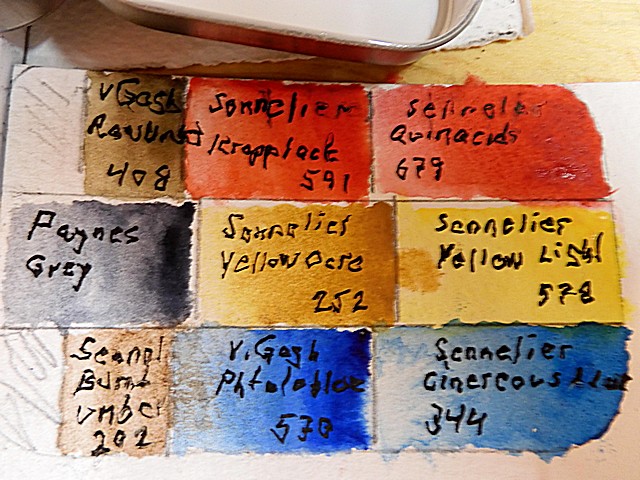 V Gogh
408
Sennelier
Krapplack
591
Sennelier
679
Paynes
Grey
Sennelier
Yellow Ocre
252
Sennelier
Yellow Light
578
Sennel
Burnt
Umber
202
V. Gogh
570
Sennelier
Cinereous blue
344